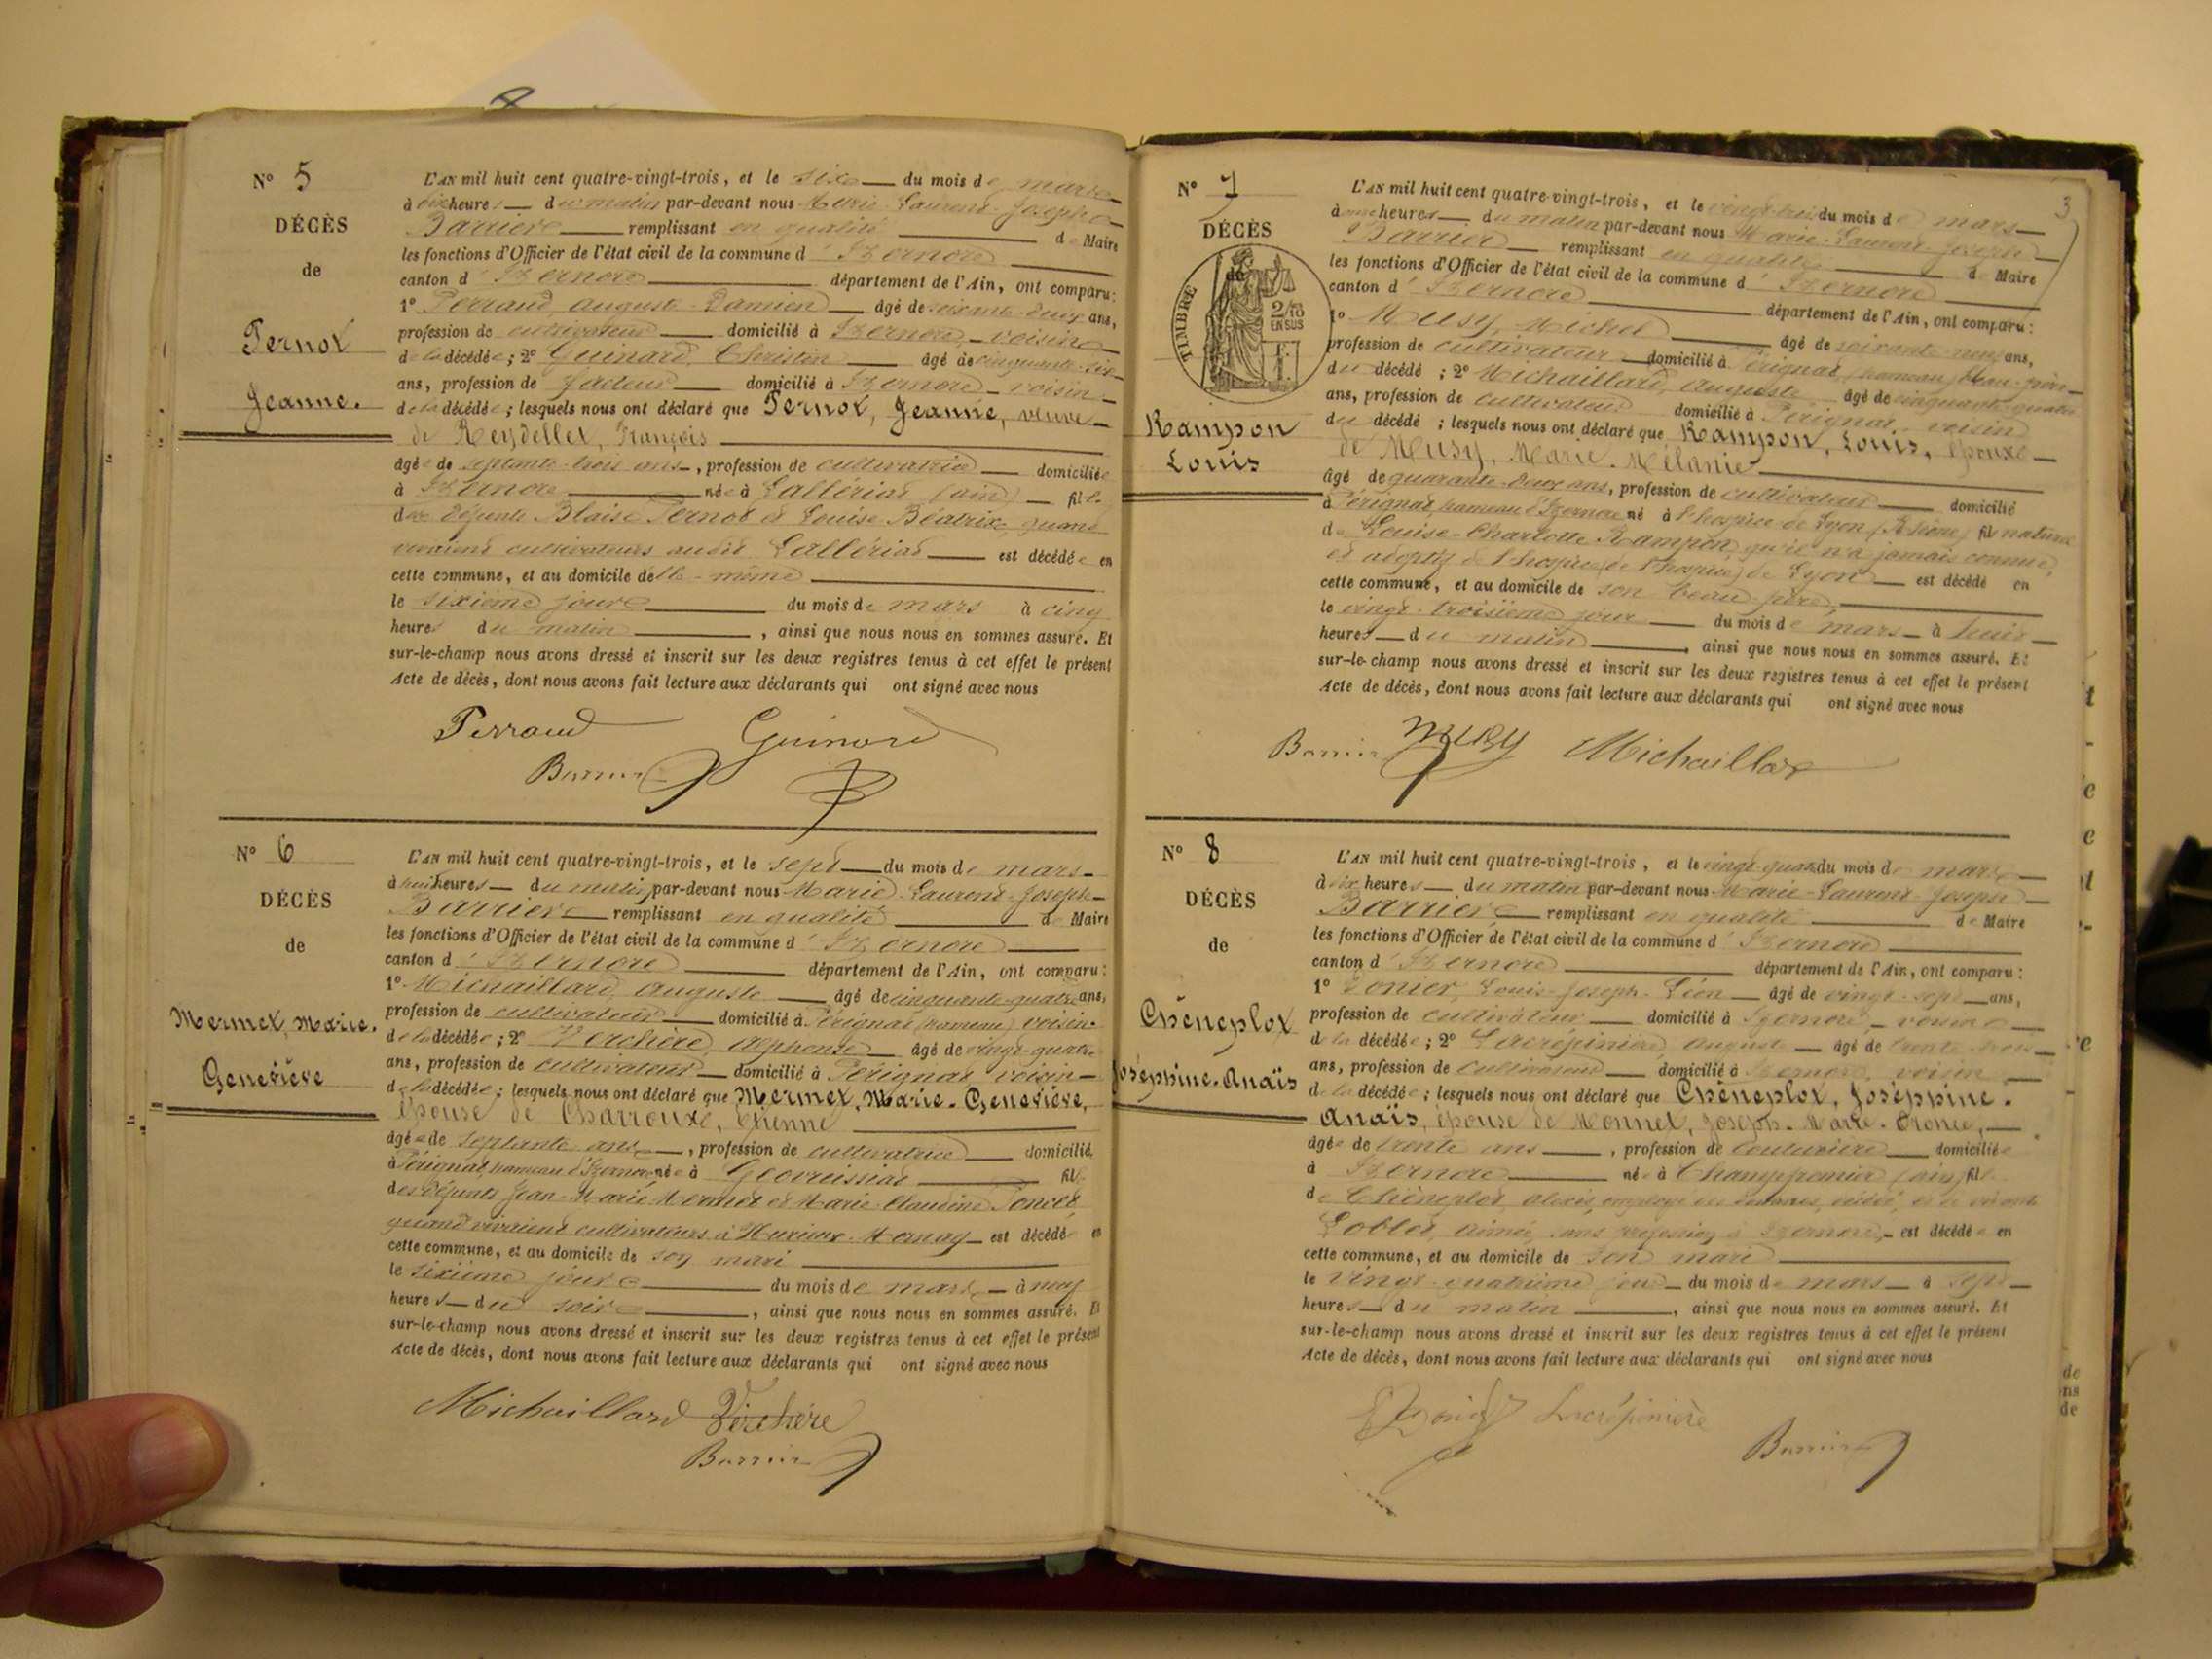 N° 5
DÉCÈS
de
Pernot
Jeanne.
L'AN mil huit cent quatre-vingt-trois, et le six du mois de mars
à dix heures du matin par-devant nous Marie-Laurent-Joseph
Barrier remplissant en qualité de Maire
les fonctions d'Officier de l'état civil de la commune d'Izernore
canton d'Izernore département de l'Ain, ont comparu:
1° Perraud, Auguste-Damien âgé de soixante-deux ans,
profession de cultivateur domicilié à Izernore, voisin
de la décédée; 2° Guinard, Christin âgé de cinquante-six
ans, profession de facteur domicilié à Izernore, voisin
de la décédée; lesquels nous ont déclaré que Pernot, Jeanne, veuve
de Reydellet, François
âgée de septante-trois ans, profession de cultivatrice domiciliée
à Izernore née à Lalleriat (ain) fille
des défunts Blaise Pernot et Louise Béatrix, quand
vivaient cultivateurs audit Lalleriat est décédée en
cette commune, et au domicile d'elle-même
le sixième jour du mois de mars à cinq
heures du matin, ainsi que nous nous en sommes assuré. Et
sur-le-champ nous avons dressé et inscrit sur les deux registres tenus à cet effet le présent
Acte de décès, dont nous avons fait lecture aux déclarants qui ont signé avec nous
Perraud Guinard
Barrier
N° 6
DÉCÈS
de
Mermet, Marie.
Geneviève
L'AN mil huit cent quatre-vingt-trois, et le sept du mois de mars
à huit heures du matin, par-devant nous Marie-Laurent-Joseph
Barrier remplissant en qualité de Maire
les fonctions d'Officier de l'état civil de la commune d'Izernore
canton d'Izernore département de l'Ain, ont comparu:
1° Michaillard, Auguste âgé de cinquante-quatre ans,
profession de cultivateur domicilié à Pérignat (hameau) voisin
de la décédée; 2° Verchère, Alphonse âgé de vingt-quatre
ans, profession de cultivateur domicilié à Pérignat voisin
de la décédée; lesquels nous ont déclaré que Mermet, Marie-Geneviève,
épouse de Charroux, Etienne
âgée de septante ans, profession de cultivatrice domiciliée
à Pérignat, hameau d'Izernore, née à Géovreissiat fille
des défunts Jean-Marie Mermet et Marie Claudine Poncet
quand vivaient cultivateurs à Mornay est décédée en
cette commune, et au domicile de son mari
le sixième jour du mois de mars à neuf
heures du soir, ainsi que nous nous en sommes assuré. Et
sur-le-champ nous avons dressé et inscrit sur les deux registres tenus à cet effet le présent
Acte de décès, dont nous avons fait lecture aux déclarants qui ont signé avec nous
Michaillard Verchère
Barrier
3
N° 7
DÉCÈS
TIMBRE
2/10
EN SUS
Rampon
Louis
L'AN mil huit cent quatre-vingt-trois, et le vingt-trois du mois de mars
à onze heures du matin par-devant nous Marie-Laurent-Joseph
Barrier remplissant en qualité de Maire
les fonctions d'Officier de l'état civil de la commune d'Izernore
canton d'Izernore département de l'Ain, ont comparu:
1° Musy, Michel âgé de soixante-neuf ans,
profession de cultivateur domicilié à Pérignat (hameau) beau-père
du décédé; 2° Michaillard, Auguste âgé de cinquante-quatre
ans, profession de cultivateur domicilié à Pérignat voisin
du décédé; lesquels nous ont déclaré que Rampon, Louis, époux
de Musy, Marie-Mélanie
âgé de quarante-deux ans, profession de cultivateur domicilié
à Pérignat, hameau d'Izernore né à l'hospice de Lyon (Rhône) fils naturel
de Louise-Charlotte Rampon, qu'il n'a jamais connue,
et adoptif de l'hospice (de l'hospice) de Lyon est décédé en
cette commune, et au domicile de son beau-père
le vingt-troisième jour du mois de mars à huit
heures du matin, ainsi que nous nous en sommes assuré. Et
sur-le-champ nous avons dressé et inscrit sur les deux registres tenus à cet effet le présent
Acte de décès, dont nous avons fait lecture aux déclarants qui ont signé avec nous
Barrier Musy Michaillard
N° 8
DÉCÈS
de
Chêneplot
Joséphine-Anaïs
L'AN mil huit cent quatre-vingt-trois, et le vingt-quatre du mois de mars
à dix heures du matin par-devant nous Marie-Laurent-Joseph
Barrier remplissant en qualité de Maire
les fonctions d'Officier de l'état civil de la commune d'Izernore
canton d'Izernore département de l'Ain, ont comparu:
1° Louis-Joseph-Léon âgé de vingt-sept ans,
profession de cultivateur domicilié à Izernore, voisin
de la décédée; 2° Lacrépinière, Auguste âgé de trente-trois
ans, profession de cultivateur domicilié à Izernore, voisin
de la décédée; lesquels nous ont déclaré que Chêneplot, Joséphine-
Anaïs, épouse de Monnet, Joseph-Marie
âgée de trente ans, profession de couturière domiciliée
à Izernore née à Champfromier (ain) fille
de Chêneplot, Alexis, employé des douanes, et de
Aimée, sans profession à Izernore, est décédée en
cette commune, et au domicile de son mari
le vingt-quatrième jour du mois de mars à sept
heures du matin, ainsi que nous nous en sommes assuré. Et
sur-le-champ nous avons dressé et inscrit sur les deux registres tenus à cet effet le présent
Acte de décès, dont nous avons fait lecture aux déclarants qui ont signé avec nous
Lacrépinière
Barrier